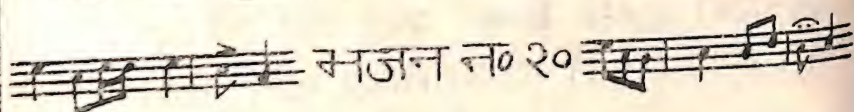 भजन न० २०